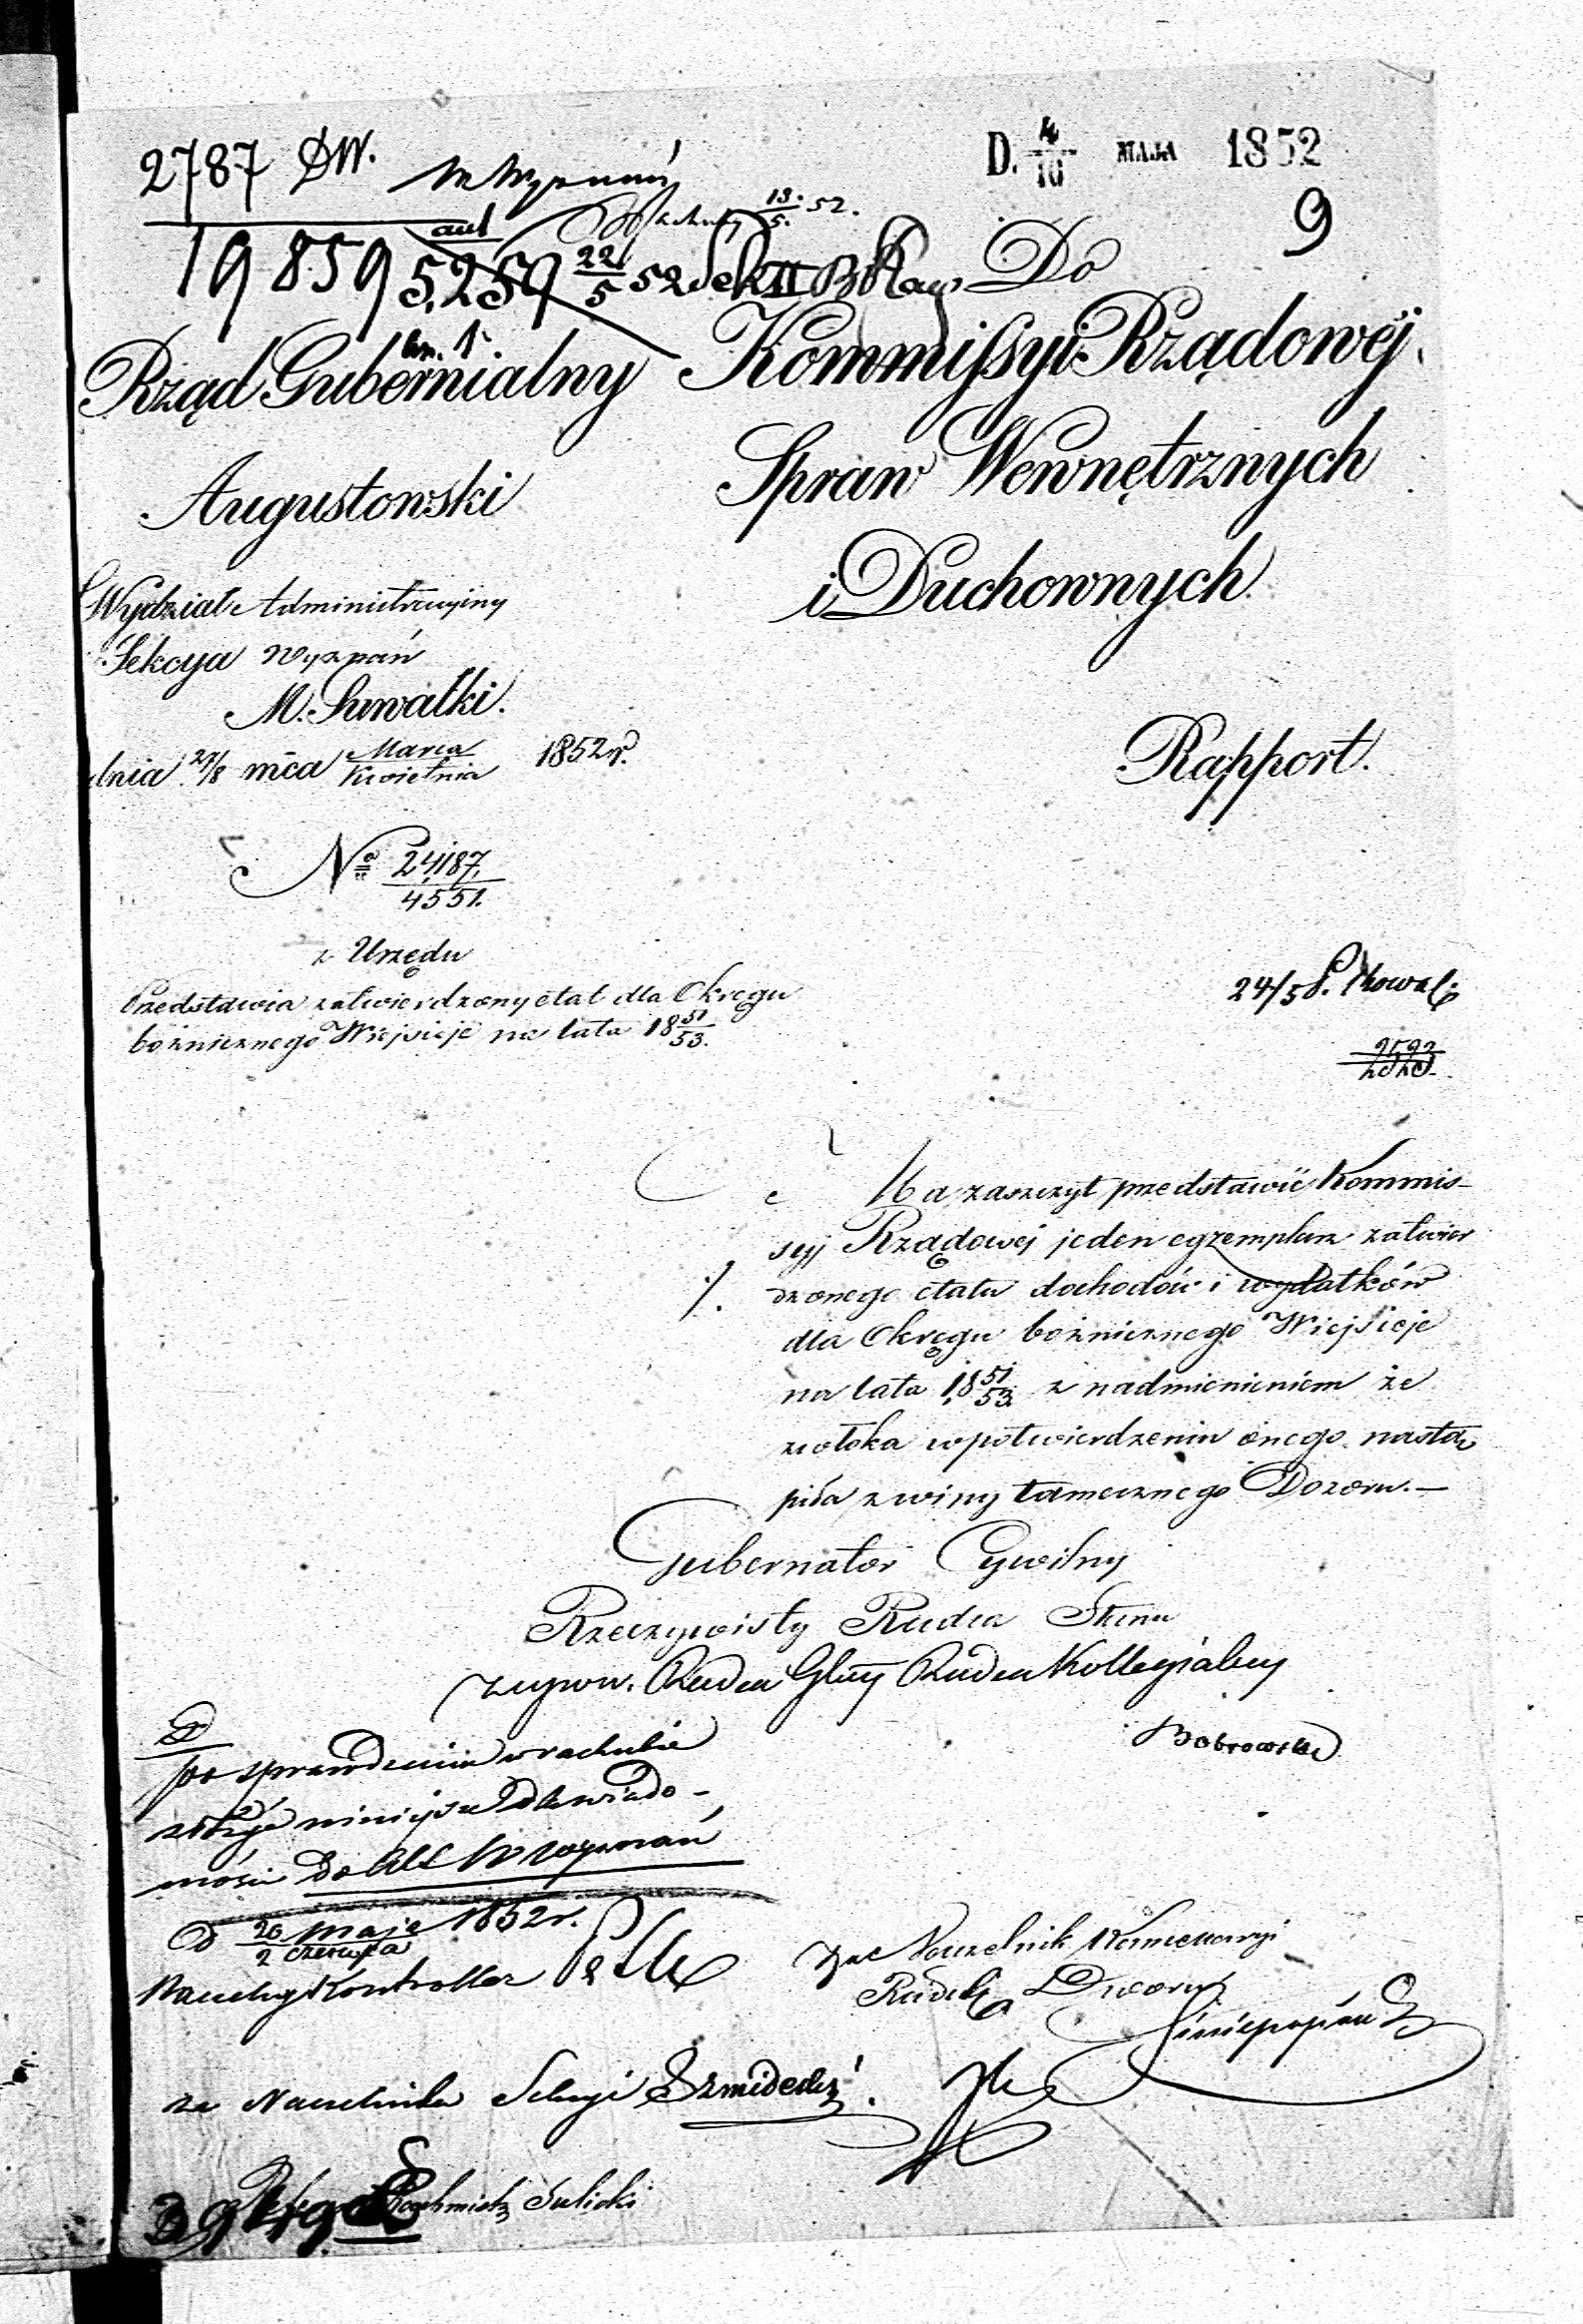 2787 DW.
D. 4/16 MAJA 1852
W Wyznań
13/5. 52.
9
19859
5,259 22/5 52 Sek II
Do
Rząd Gubernialny
Kommissyi Rządowéj
Augustowski
Spraw Wewnętrznych
i Duchownych
Wydział Administracyjny
Sekcya Wyznań
M. Suwałki.
dnia 27/8 mca Marca/Kwietnia 1852 r.
Rapport.
No 24,187./4551.
z Urzędu
Przedstawia zatwierdzony etat dla Okręgu
bożnicznego Wiejsieje na lata 18 51/53.
24/5
Ma zaszczyt przedstawić Kommis-
syj Rządowej jeden egzemplarz zatwier
dzonego etatu dochodów i wydatków
dla Okręgu bożnicznego Wiejsieje
na lata 18 51/53 z nadmienieniem że
zwłoka w potwierdzeniu onego nastą
piła z winy tamecznego Dozoru.—
Gubernator Cywilny
Rzeczywisty Radca Stanu
Radca Kollegialny
po sprawdzeniu w rachubie
złożyć niniejsze do wiado-
mości Do Akt W Wyznań
D 20 maja/2 czerwca 1852 r.
Naczelny Kontroller
Naczelnik
Radca Dworu
za Naczelnika Sekcyi
Sulicki